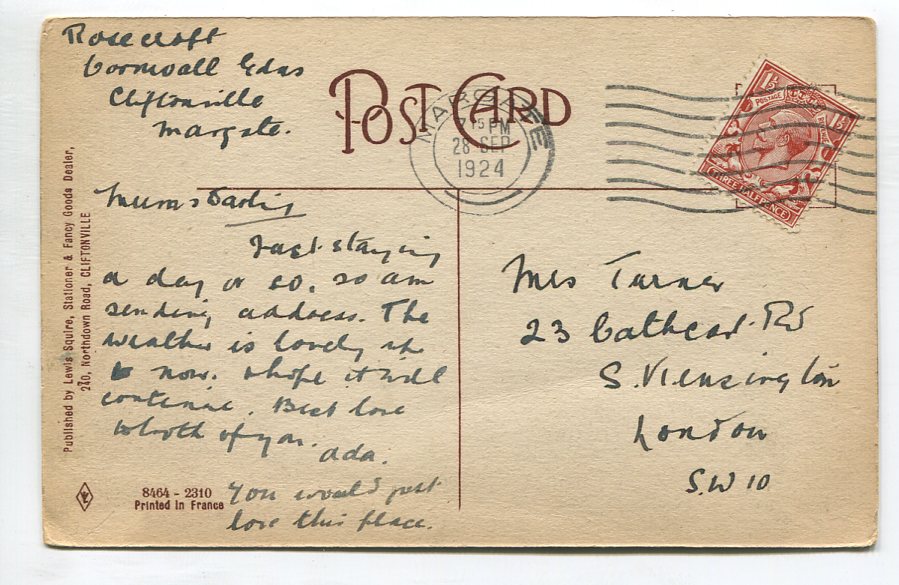 Rosecroft
Cornwall Gdns
Cliftonville
Margate.
POST CARD
MARGATE
15 PM
28 SEP
1924
POSTAGE
THREE HALFPENCE
Mums Darling
Just staying
a day or so, so am
sending address. The
weather is lovely up
to now. I hope it will
continue. Best love
to both of you.
Ada.
You would just
love this place.
Mrs Turner
23 Cathcart Rd
S. Kensington
London
S.W 10
Published by Lewis Squire, Stationer & Fancy Goods Dealer,
210, Northdown Road, CLIFTONVILLE
8464 - 2310
Printed in France